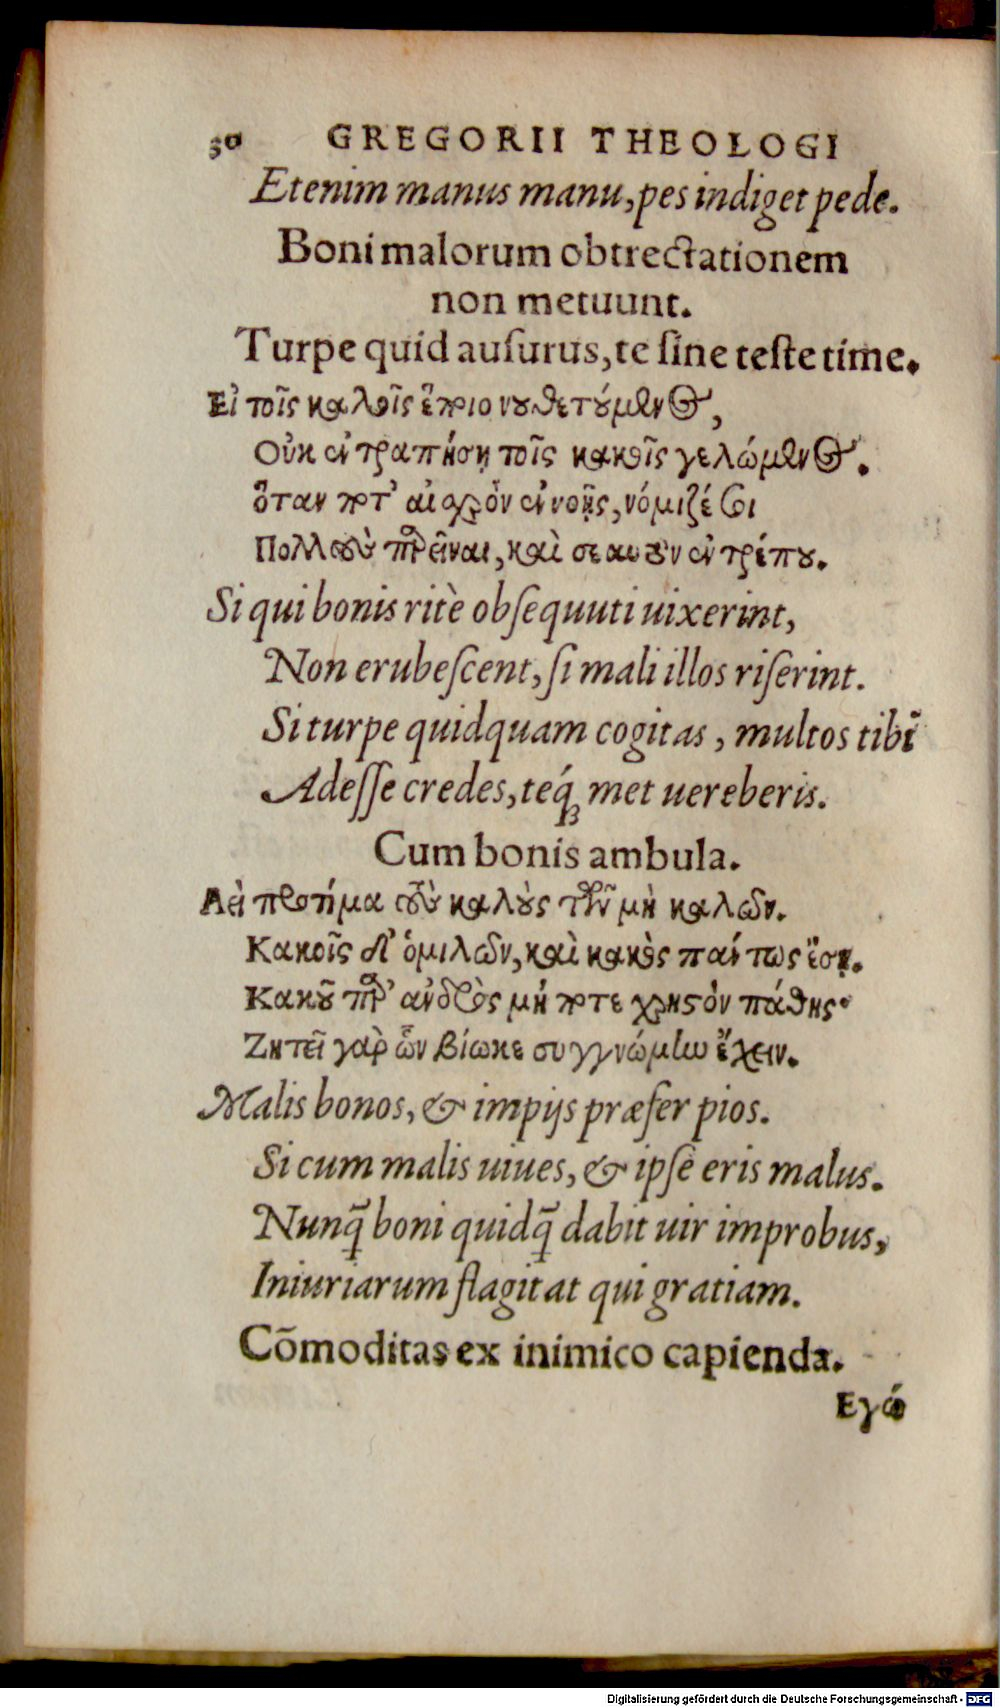 50 GREGORII THEOLOGI
Etenim manus manu, pes indiget pede.
Boni malorum obtrectationem
non metuunt.
Turpe quid ausurus, te sine teste time.
Εἰ τοῖς καλοῖς ἔποιο νουθετούμενος,
Οὐκ ἐντραπήσῃ τοῖς κακοῖς γελώμενος.
ὅταν ποτ' αἰσχρὸν ἐννοῇς, νόμιζέ σοι
Πολλοὺς παρεῖναι, καὶ σεαυτὸν ἐντρέπου.
Si qui bonis ritè obsequuti uixerint,
Non erubescent, si mali illos riserint.
Si turpe quidquam cogitas, multos tibi
Adesse credes, teq́ue met uereberis.
Cum bonis ambula.
Αεὶ προτίμα τοὺς καλοὺς τῶν μὴ καλῶν.
Κακοῖς δ' ὁμιλῶν, καὶ κακὸς πάντως ἔσῃ.
Κακοῦ παρ' ἀνδρὸς μή ποτε χρηστὸν πάθῃς·
Ζητεῖ γὰρ ὧν βίωκε συγγνώμην ἔχειν.
Malis bonos, & impijs præfer pios.
Si cum malis uiues, & ipse eris malus.
Nunq̃ boni quidq̃ dabit uir improbus,
Iniuriarum flagitat qui gratiam.
Cõmoditas ex inimico capienda.
Εγώ
Digitalisierung gefördert durch die Deutsche Forschungsgemeinschaft - DFG